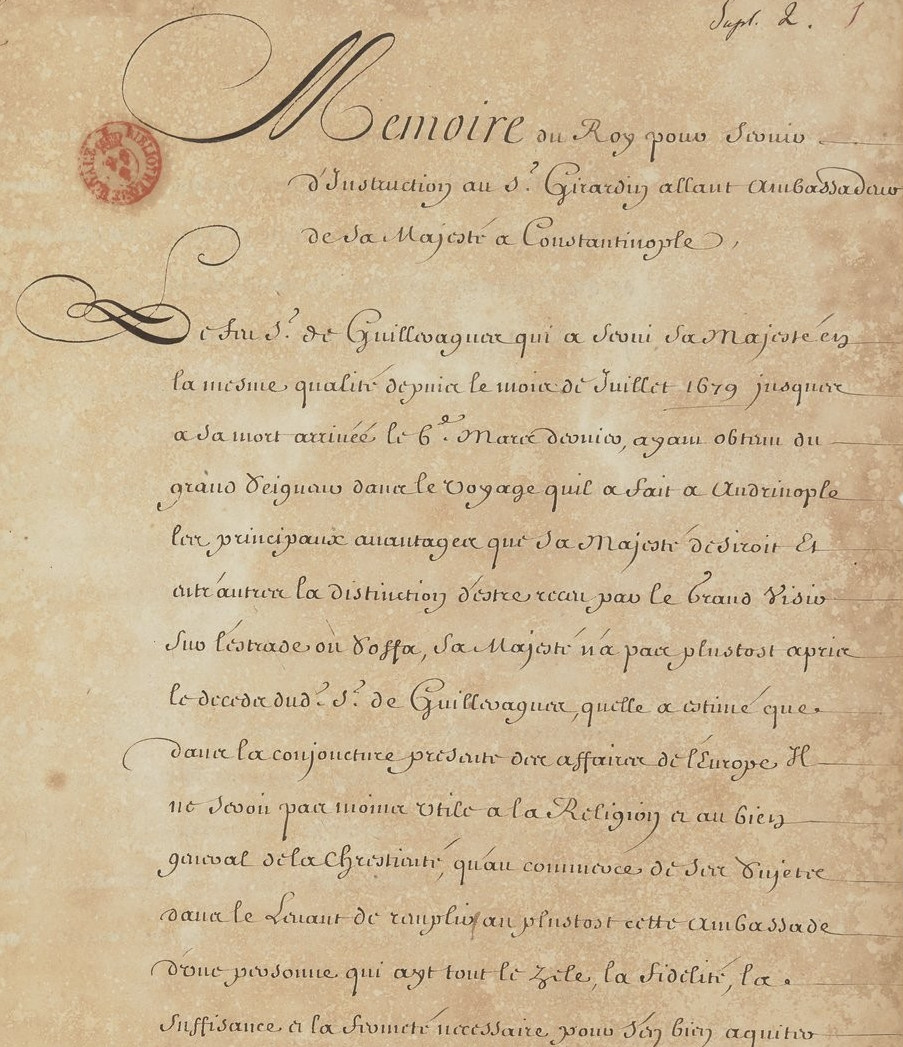 Supl. 2. 1
Memoire du Roy pour servir
d'Instruction au Sr. Girardin allant Ambassadeur
de Sa Majesté a Constantinople,
Le feu Sr. de Guilleragues qui a servi Sa Majesté en
la mesme qualité depuis le mois de Juillet 1679 jusques
a Sa mort arrivée le 6e. Mars dernier, ayant obtenu du
grand Seigneur dans le Voyage quil a fait a Andrinople
les principaux auantages que Sa Majesté desiroit Et
entr'autres la distinction d'estre receu par le Grand Visir
Sur l'estrade ou Soffa, Sa Majesté n'a pas plustost apris
le deceds dud. Sr. de Guilleragues, quelle a estimé que
dans la conjoncture presente des affaires de l'Europe Il
ne seroit pas moins Vtile a la Religion et au bien
general de la Chrestienté, qu'au commerce de ses Sujets
dans le Leuant de remplir au plustost cette Ambassade
d'une personne qui ayt tout le zele, la fidelité, la
Suffisance et la fermeté necessaire pour s'en bien aquiter